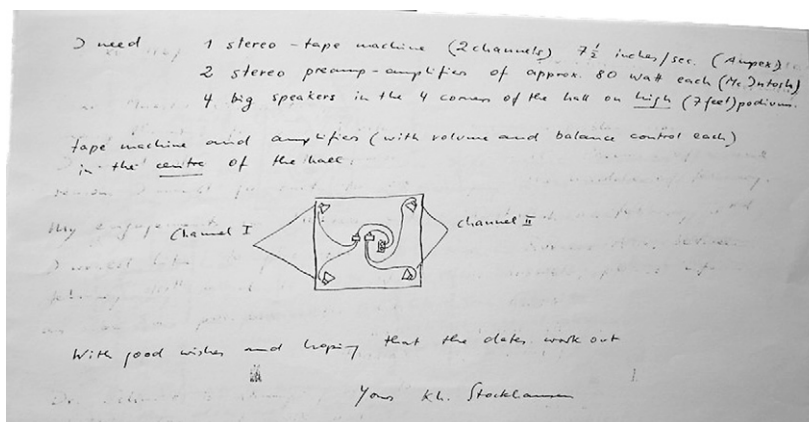 I need 1 stereo-tape machine (2 channels) 7 ½ inches/sec. (Ampex)
2 stereo preamp-amplifiers of approx. 80 Watt each (Mc.Intosh)
4 big speakers in the 4 corners of the hall on high (7 feet) podiums.
tape machine and amplifiers (with volume and balance control each)
in the centre of the hall.
Channel I
channel II
With good wishes and hoping that the dates work out
Yours Kh. Stockhausen